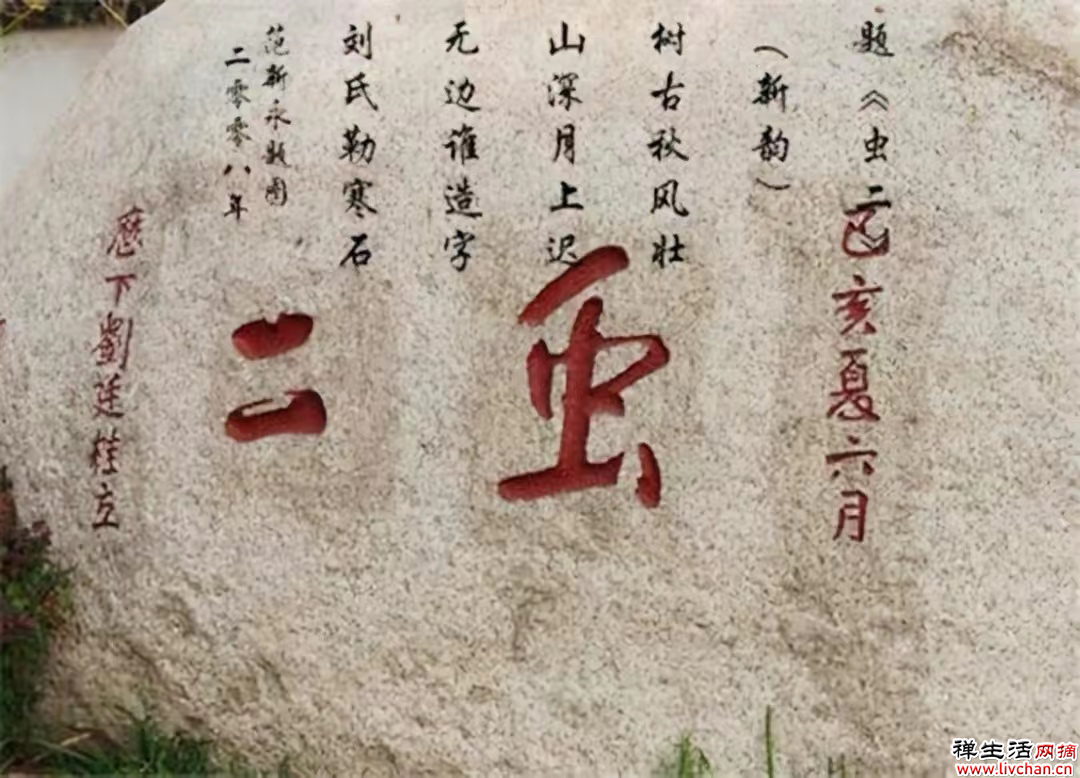 题《虫二》
（新韵）
树古秋风壮
山深月上迟
无边谁造字
刘氏勒寒石
范新永题图
二零零八年
己亥夏六月
虫二
歷下劉廷桂立
禅生活网摘
www.livchan.cn